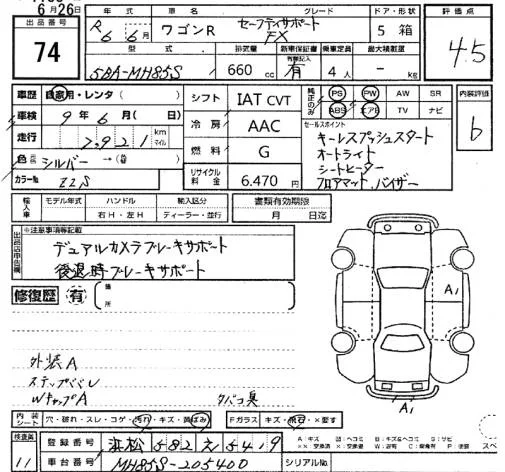 6月26日
出品番号 年式 車名 グレード ドア・形状 評価点
74 R 6年 6月 ワゴンR セーフティサポート FX 5 箱 4.5
型式 排気量 新車保証書 乗車定員 最大積載量
5BA-MH85S 660 cc 有 4人 - kg
車歴 自家用・レンタ ( ) シフト IAT CVT 純正のみ PS PW AW SR 内装評価
車検 9年 6月 ( 日) ABS エアB TV ナビ b
走行 7,921 km マイル 冷房 AAC セールスポイント
色 シルバー → 燃料 G キーレスプッシュスタート
オートライト
カラーNo. ZZS リサイクル料金 6.470円 シートヒーター
フロアマット、バイザー
輸入車 モデル年式 ハンドル 輸入区分 書類有効期限
右H・左H ディーラー・並行 月 日迄
出品店申告欄 ※注意事項等記載
デュアルカメラブレーキサポート
後退時ブレーキサポート
修復歴 有 ( 箇所 )
A1
外装A
ステップバレ
WキャップA タバコ臭
A1
内装シート 穴・破れ・スレ・コゲ・汚れ・キズ・黄ばみ Fガラス キズ・飛石・×要す
検査員 登録番号 浜松 582 え 5419
11 車台番号 MH85S-205400 シリアルNo.